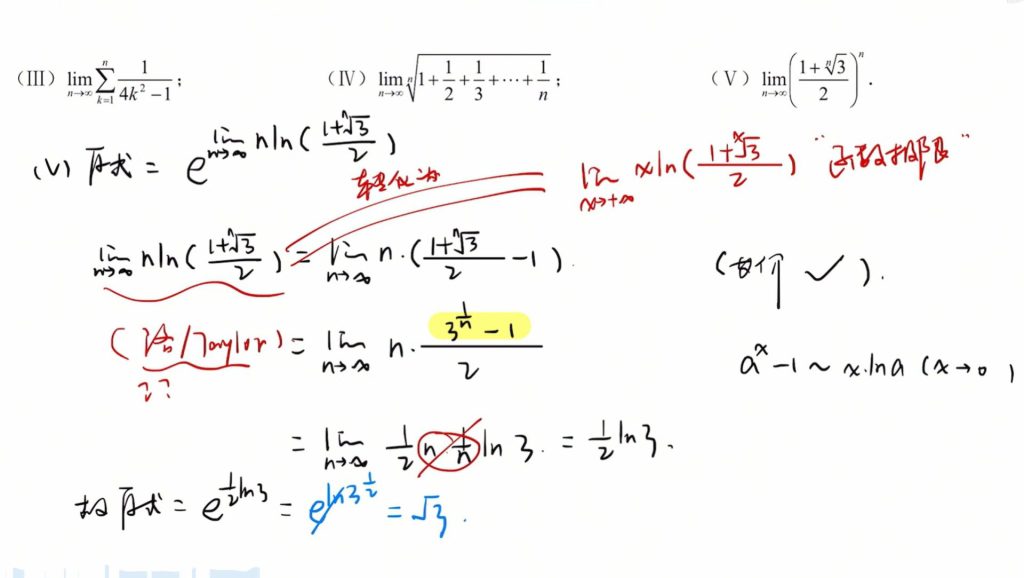 (III) $\lim_{n\to\infty}\sum_{k=1}^{n}\frac{1}{4k^2-1}$;
(IV) $\lim_{n\to\infty}\sqrt[n]{1+\frac{1}{2}+\frac{1}{3}+\cdots+\frac{1}{n}}$;
(V) $\lim_{n\to\infty}\left(\frac{1+\sqrt[n]{3}}{2}\right)^n$.
(V) 原式 = $e^{\lim_{n\to\infty} n\ln(\frac{1+\sqrt[n]{3}}{2})}$
转化为
$\lim_{x\to+\infty} x\ln(\frac{1+\sqrt[x]{3}}{2})$ "函数极限"
$\lim_{n\to\infty} n\ln(\frac{1+\sqrt[n]{3}}{2}) = \lim_{n\to\infty} n\cdot(\frac{1+\sqrt[n]{3}}{2}-1)$.
(等价 ✓).
(洛/Taylor) $= \lim_{n\to\infty} n\cdot\frac{3^{\frac{1}{n}}-1}{2}$
??
$a^x-1\sim x\cdot\ln a$ ($x\to0$)
$= \lim_{n\to\infty}\frac{1}{2}n\cdot\frac{1}{n}\ln 3. = \frac{1}{2}\ln 3.$
故原式 = $e^{\frac{1}{2}\ln 3} = e^{\ln 3^{\frac{1}{2}}} = \sqrt{3}$.